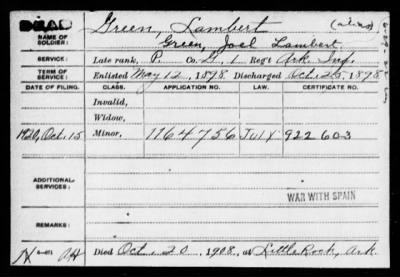 DEAD
Green, Lambert (alias)
NAME OF SOLDIER: Green, Joel Lambert.
SERVICE: Late rank, P. Co. G, 1 Reg't Ark. Inf.
TERM OF SERVICE: Enlisted May 12, 1898 Discharged Oct. 25, 1898
DATE OF FILING. CLASS. APPLICATION NO. LAW. CERTIFICATE NO.
Invalid,
Widow,
1920, Oct 15 Minor, 1164756 July 922603
ADDITIONAL SERVICES:
WAR WITH SPAIN
REMARKS:
Died Oct. 20, 1908, at Little Rock, Ark.